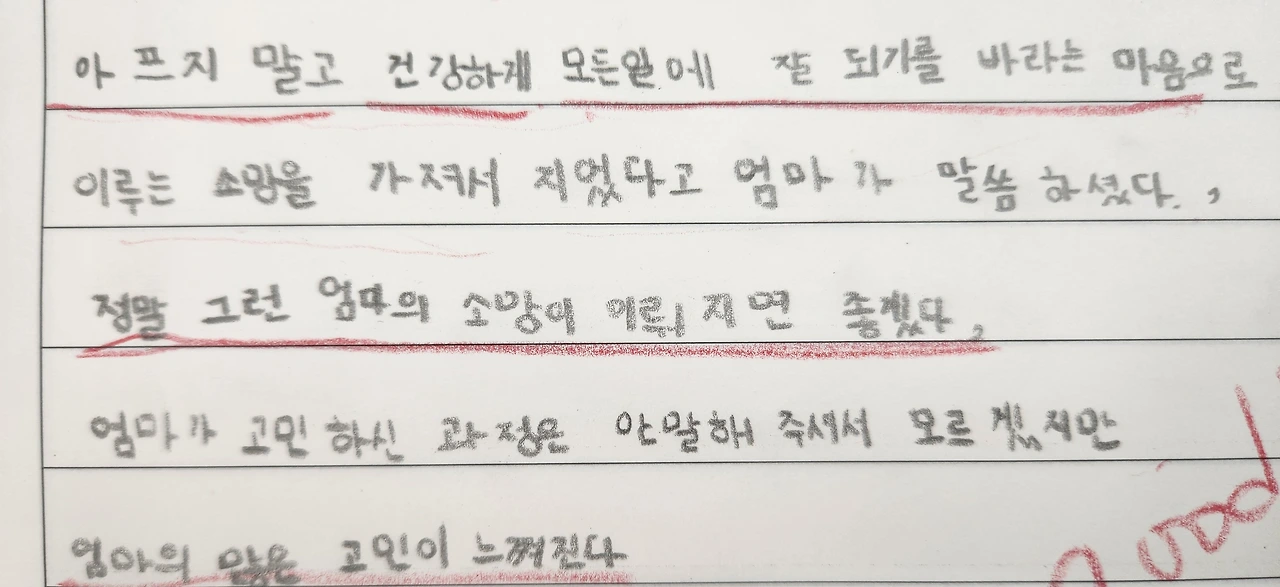 아프지 말고 건강하게 모든일에 잘 되기를 바라는 마음으로
이루는 소망을 가져서 지었다고 엄마가 말씀하셨다.,
정말 그런 엄마의 소망이 이뤄지면 좋겠다,
엄마가 고민하신 과정은 안말해 주셔서 모르겠지만
엄마의 많은 고민이 느껴진다
Good!